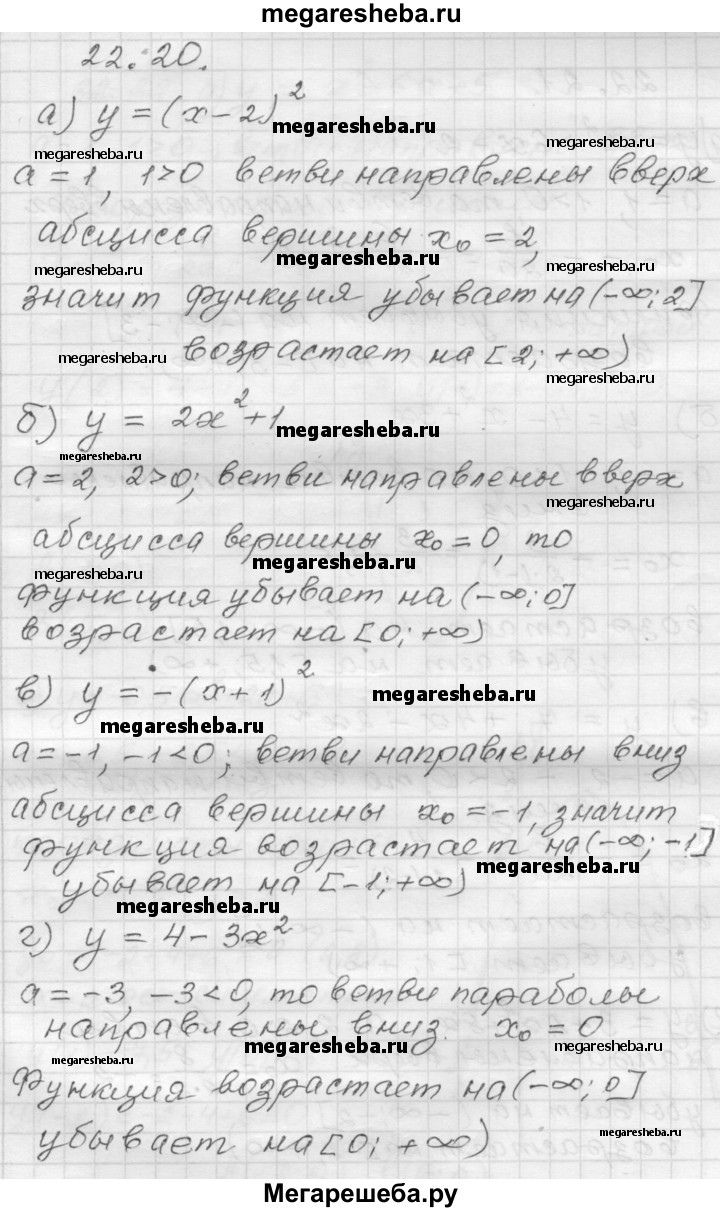 megaresheba.ru
22.20.
а) y = (x-2)²
megaresheba.ru
megaresheba.ru
megaresheba.ru
a = 1, 1>0 ветви направлены вверх
абсцисса вершины x₀ = 2,
megaresheba.ru
megaresheba.ru
megaresheba.ru
значит функция убывает на (-∞; 2]
возрастает на [2; +∞)
megaresheba.ru
megaresheba.ru
б) y = 2x²+1
megaresheba.ru
megaresheba.ru
a = 2, 2>0; ветви направлены вверх
megaresheba.ru
абсцисса вершины x₀ = 0, то
megaresheba.ru
megaresheba.ru
megaresheba.ru
функция убывает на (-∞; 0]
возрастает на [0; +∞)
в) y = -(x+1)²
megaresheba.ru
megaresheba.ru
a = -1, -1<0; ветви направлены вниз
абсцисса вершины x₀ = -1, значит
функция возрастает на (-∞; -1]
megaresheba.ru
убывает на [-1; +∞)
megaresheba.ru
г) y = 4 - 3x²
a = -3, -3<0, то ветви параболы
направлены вниз. x₀ = 0
megaresheba.ru
megaresheba.ru
megaresheba.ru
Функция возрастает на (-∞; 0]
убывает на [0; +∞)
megaresheba.ru
Мегарешеба.ру